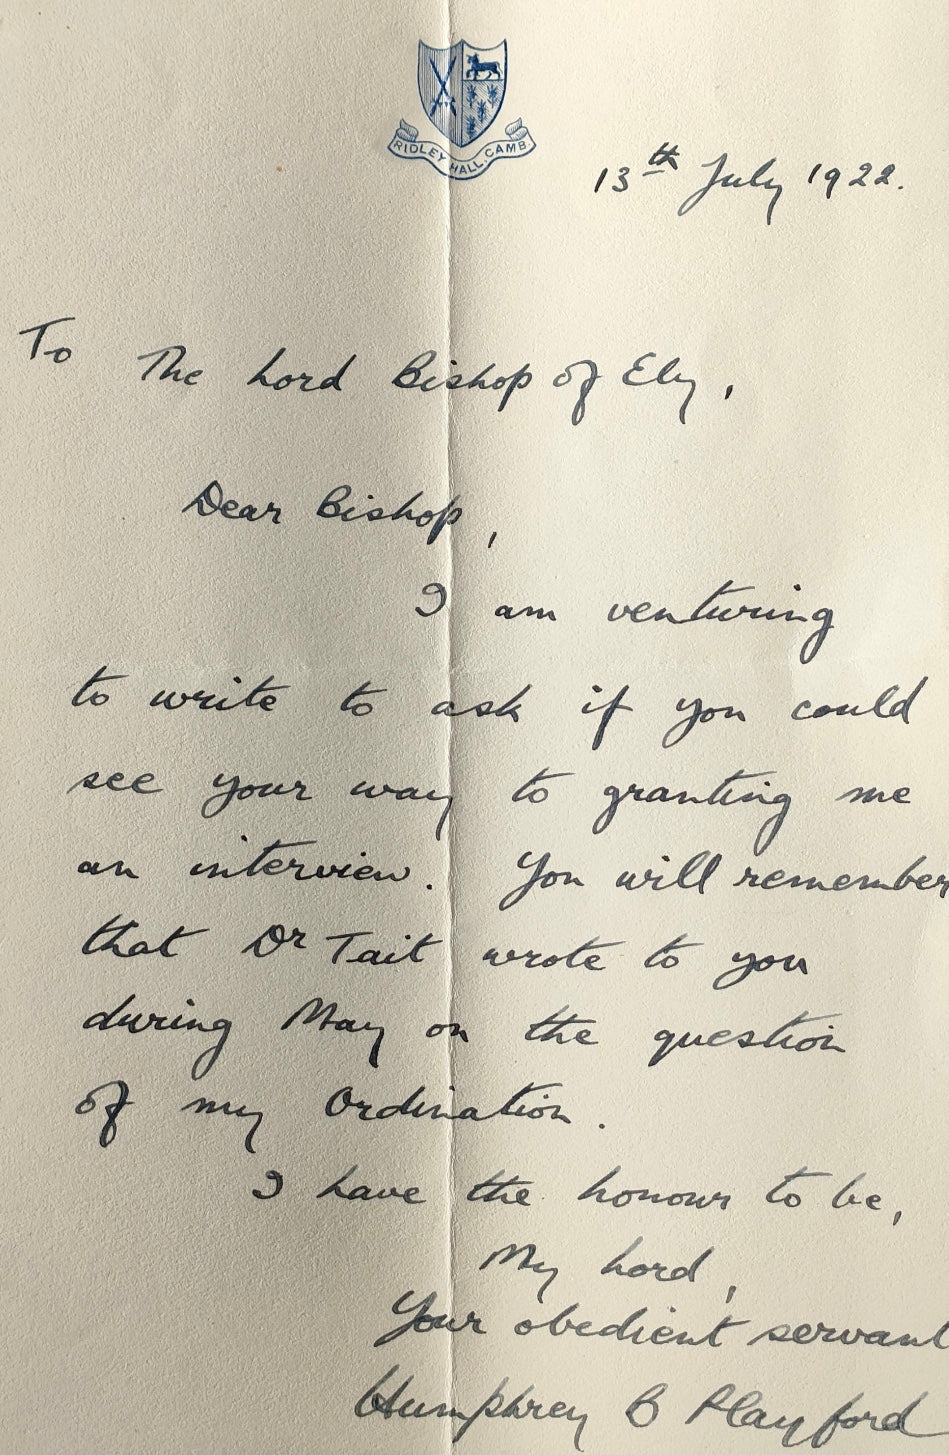 RIDLEY HALL, CAMB.
13th July 1922.
To The Lord Bishop of Ely,
Dear Bishop,
I am venturing
to write to ask if you could
see your way to granting me
an interview. You will remember
that Dr Tait wrote to you
during May on the question
of my Ordination.
I have the honour to be,
My Lord,
Your obedient servant
Humphrey B Playford